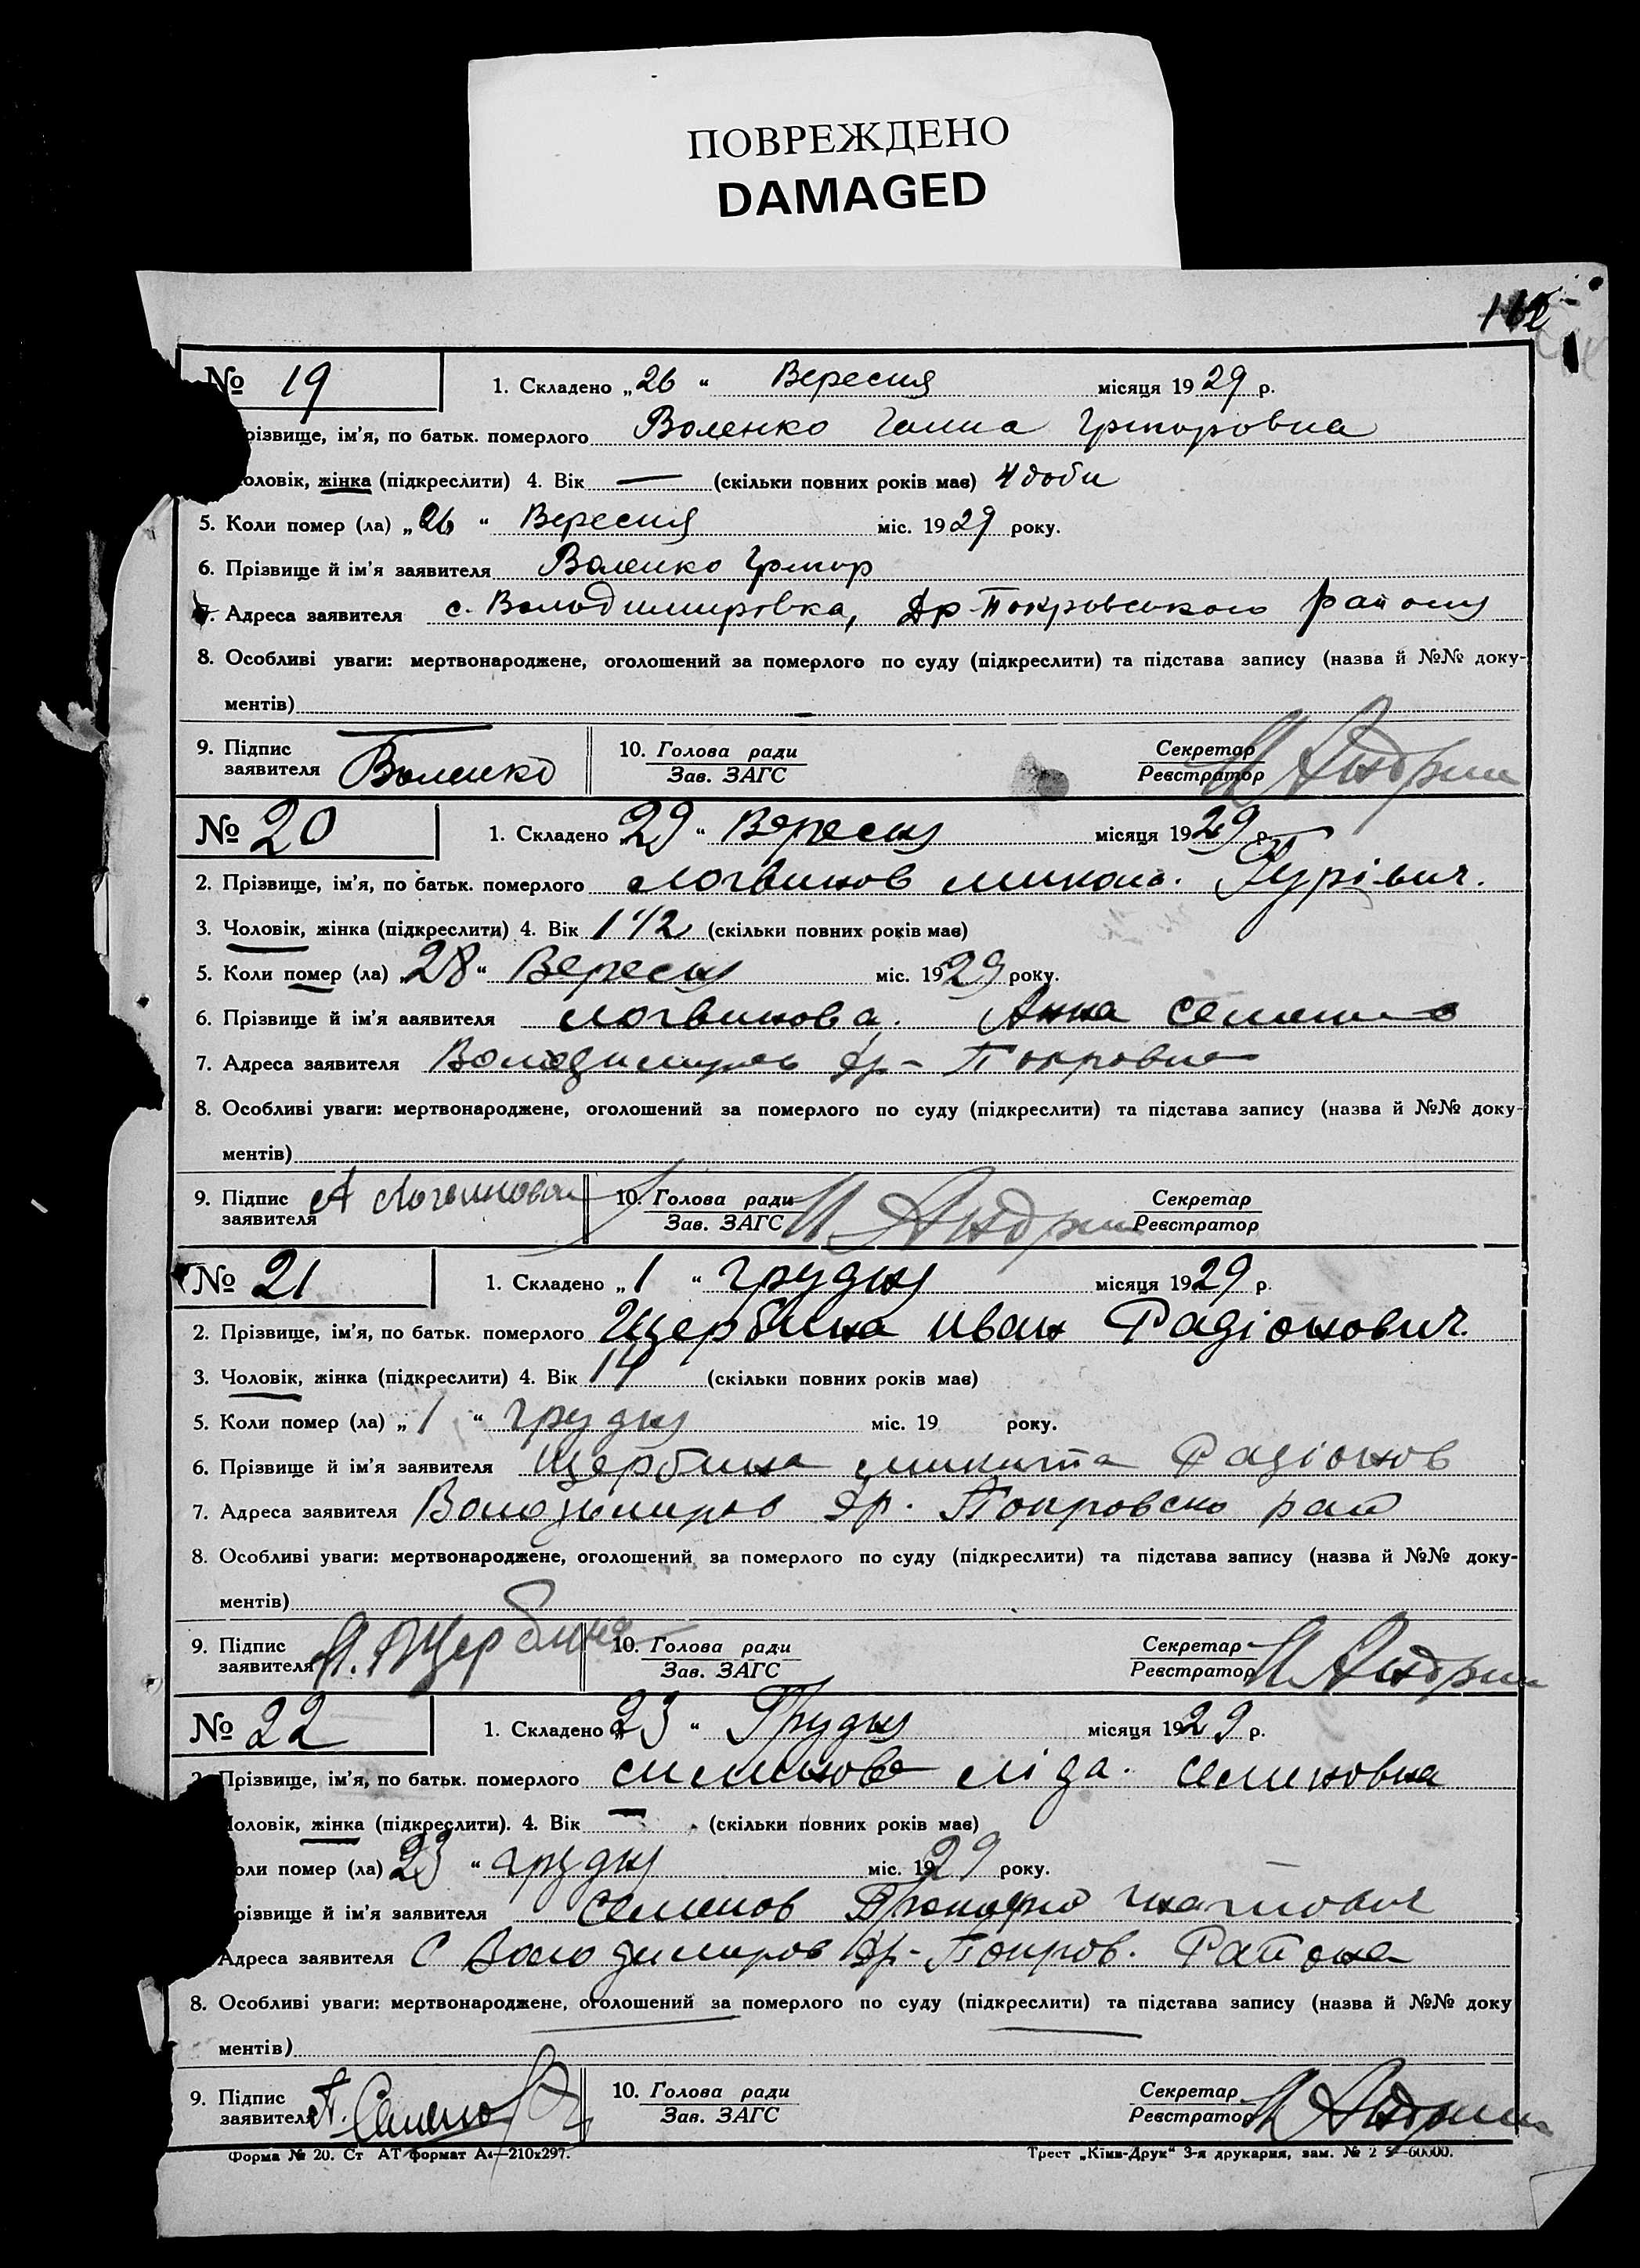 ПОВРЕЖДЕНО
DAMAGED
№ 19 1. Складено „26“ Вересня місяця 1929 р.
різвище, ім’я, по батьк. померлого Воленко Галина Григоровна
оловік, жінка (підкреслити) 4. Вік — (скільки повних років має) 4 доби
5. Коли помер (ла) „26“ Вересня міс. 1929 року.
6. Прізвище й ім’я заявителя Воленко Григор
7. Адреса заявителя с. Володимировка, Др-Покровського району
8. Особливі уваги: мертвонароджене, оголошений за померлого по суду (підкреслити) та підстава запису (назва й №№ доку-
ментів)
9. Підпис заявителя Воленко 10. Голова ради Зав. ЗАГС Секретар Реєстратор
№ 20 1. Складено 29“ Вересня місяця 1929 р.
2. Прізвище, ім’я, по батьк. померлого Логвинов Микола Гурівич.
3. Чоловік, жінка (підкреслити) 4. Вік 1 1/2 (скільки повних років має)
5. Коли помер (ла) 28“ Вересня міс. 1929 року.
6. Прізвище й ім’я заявителя Логвинова Анна
7. Адреса заявителя Володимиров Др-Покровка
8. Особливі уваги: мертвонароджене, оголошений за померлого по суду (підкреслити) та підстава запису (назва й №№ доку-
ментів)
9. Підпис заявителя А Логвинова 10. Голова ради Зав. ЗАГС Секретар Реєстратор
№ 21 1. Складено „1“ грудня місяця 1929 р.
2. Прізвище, ім’я, по батьк. померлого Щербина Иван Радіонович.
3. Чоловік, жінка (підкреслити) 4. Вік 14 (скільки повних років має)
5. Коли помер (ла) „1“ грудня міс. 19 року.
6. Прізвище й ім’я заявителя Щербина Микита Радіонов
7. Адреса заявителя Володимиров Др. Покровско рай
8. Особливі уваги: мертвонароджене, оголошений за померлого по суду (підкреслити) та підстава запису (назва й №№ доку-
ментів)
9. Підпис заявителя Щербина 10. Голова ради Зав. ЗАГС Секретар Реєстратор
№ 22 1. Складено „23“ Грудня місяця 1929 р.
2. Прізвище, ім’я, по батьк. померлого Ліда. Семиновна
оловік, жінка (підкреслити). 4. Вік — (скільки повних років має)
оли помер (ла) 23“ грудня міс. 1929 року.
різвище й ім’я заявителя Семенов Прокофий
Адреса заявителя С Володимиров Др-Покров. Района
8. Особливі уваги: мертвонароджене, оголошений за померлого по суду (підкреслити) та підстава запису (назва й №№ доку
ментів)
9. Підпис заявителя П. Семенов 10. Голова ради Зав. ЗАГС Секретар Реєстратор
Форма № 20. Ст АТ формат А4—210х297. Трест „Київ-Друк“ 3-я друкарня, зам. №